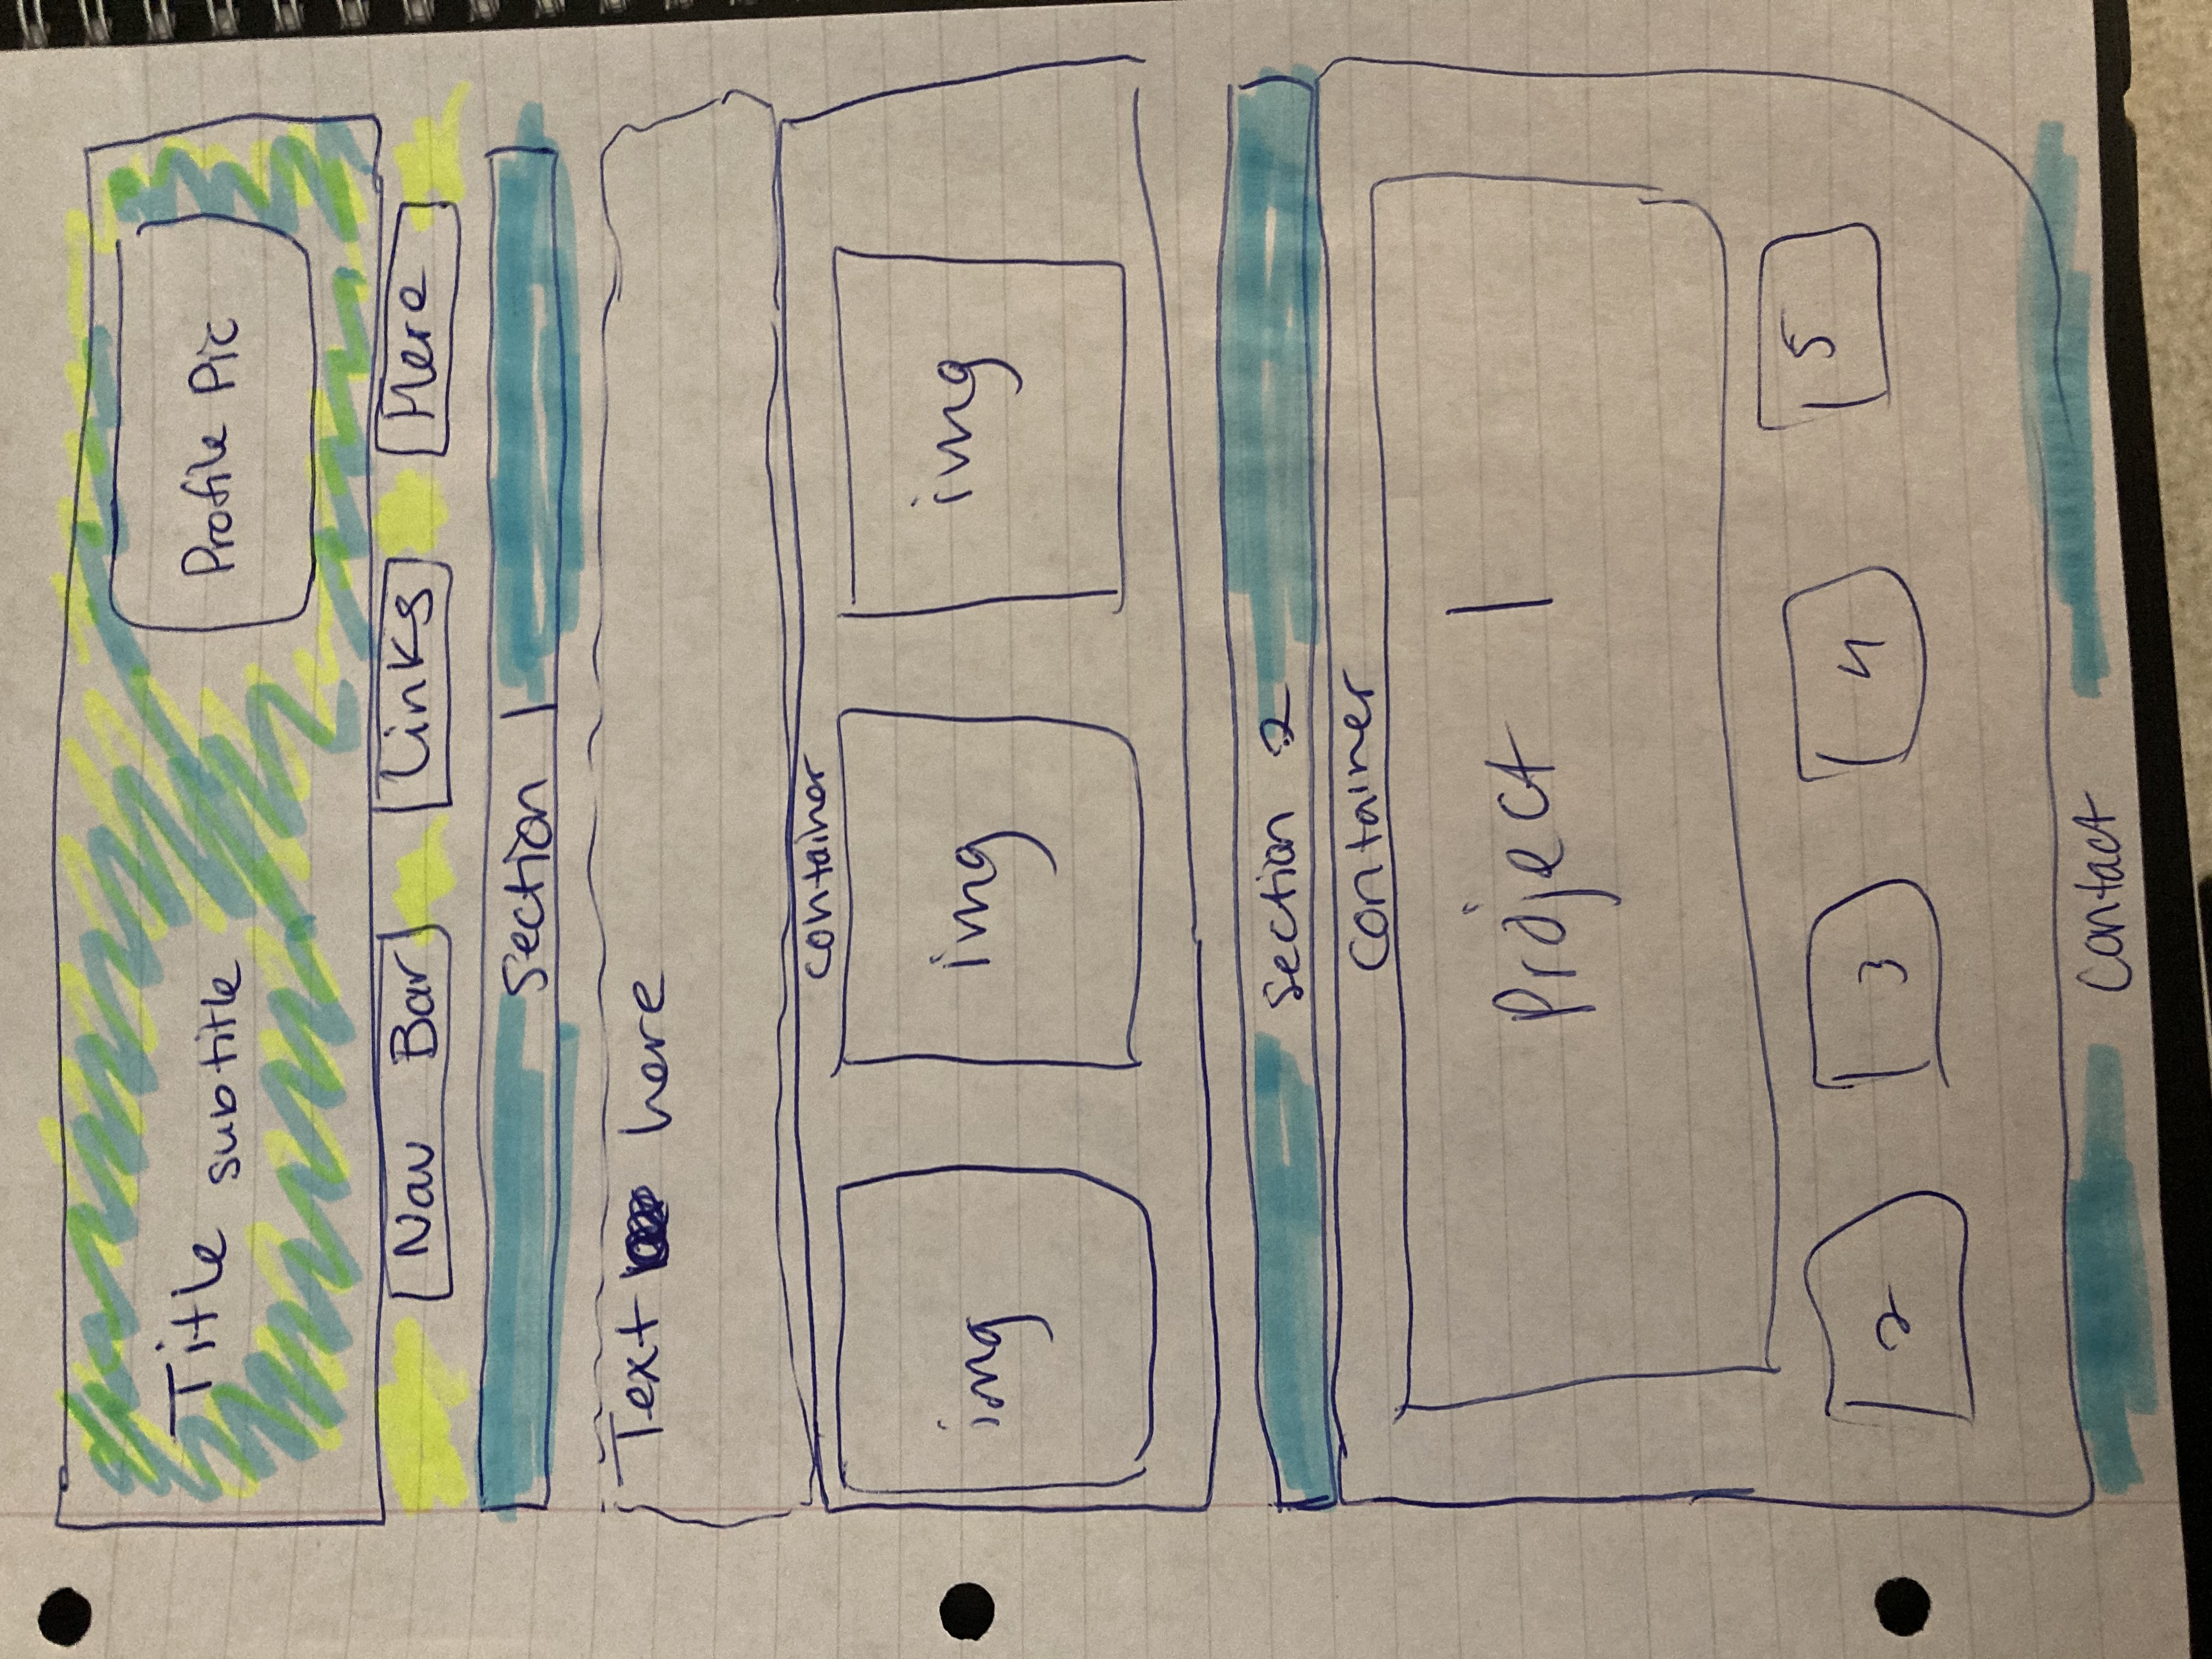 Title subtitle Profile Pic
Nav Bar Links Here
Section 1
Text here
Container
img img img
Section 2
Container
Project 1
2 3 4 5
Contact